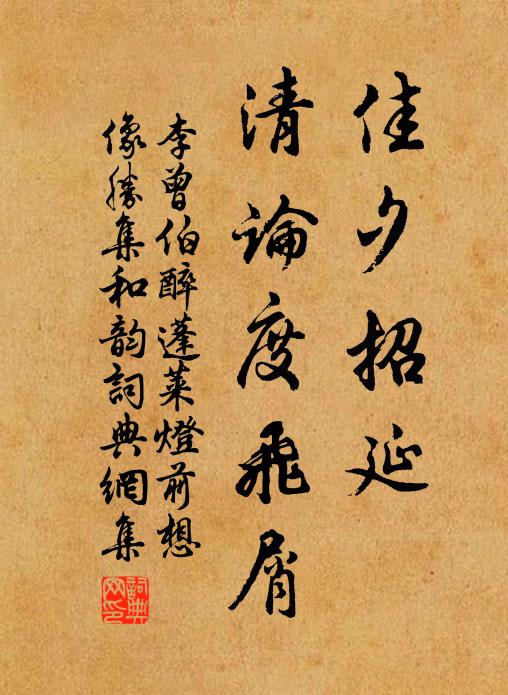 佳夕招延
清論度飛屑
李曾伯醉蓬萊燈前想
像勝集和韵詞典網集
詞典網印